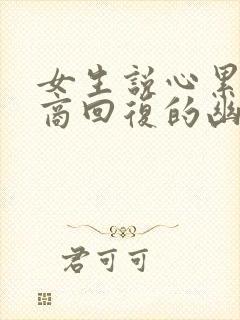 女生說心累
商回復的幽
君可可